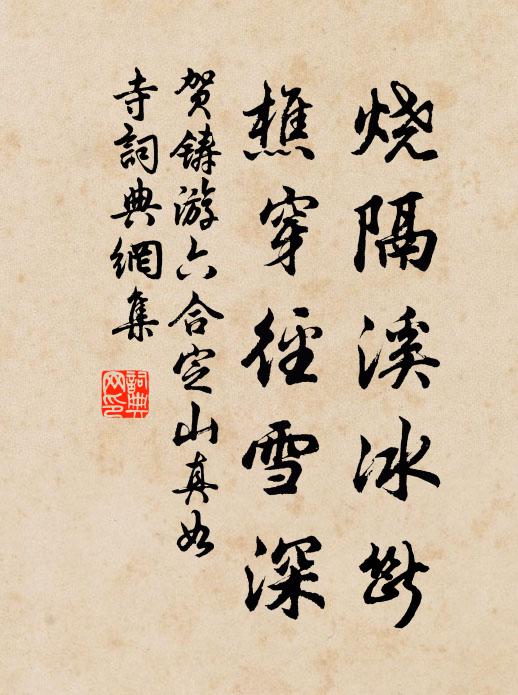 烧隔溪冰断
樵穿径雪深
贺鋳游六合定山真如
寺詞典網集
詞典
网印